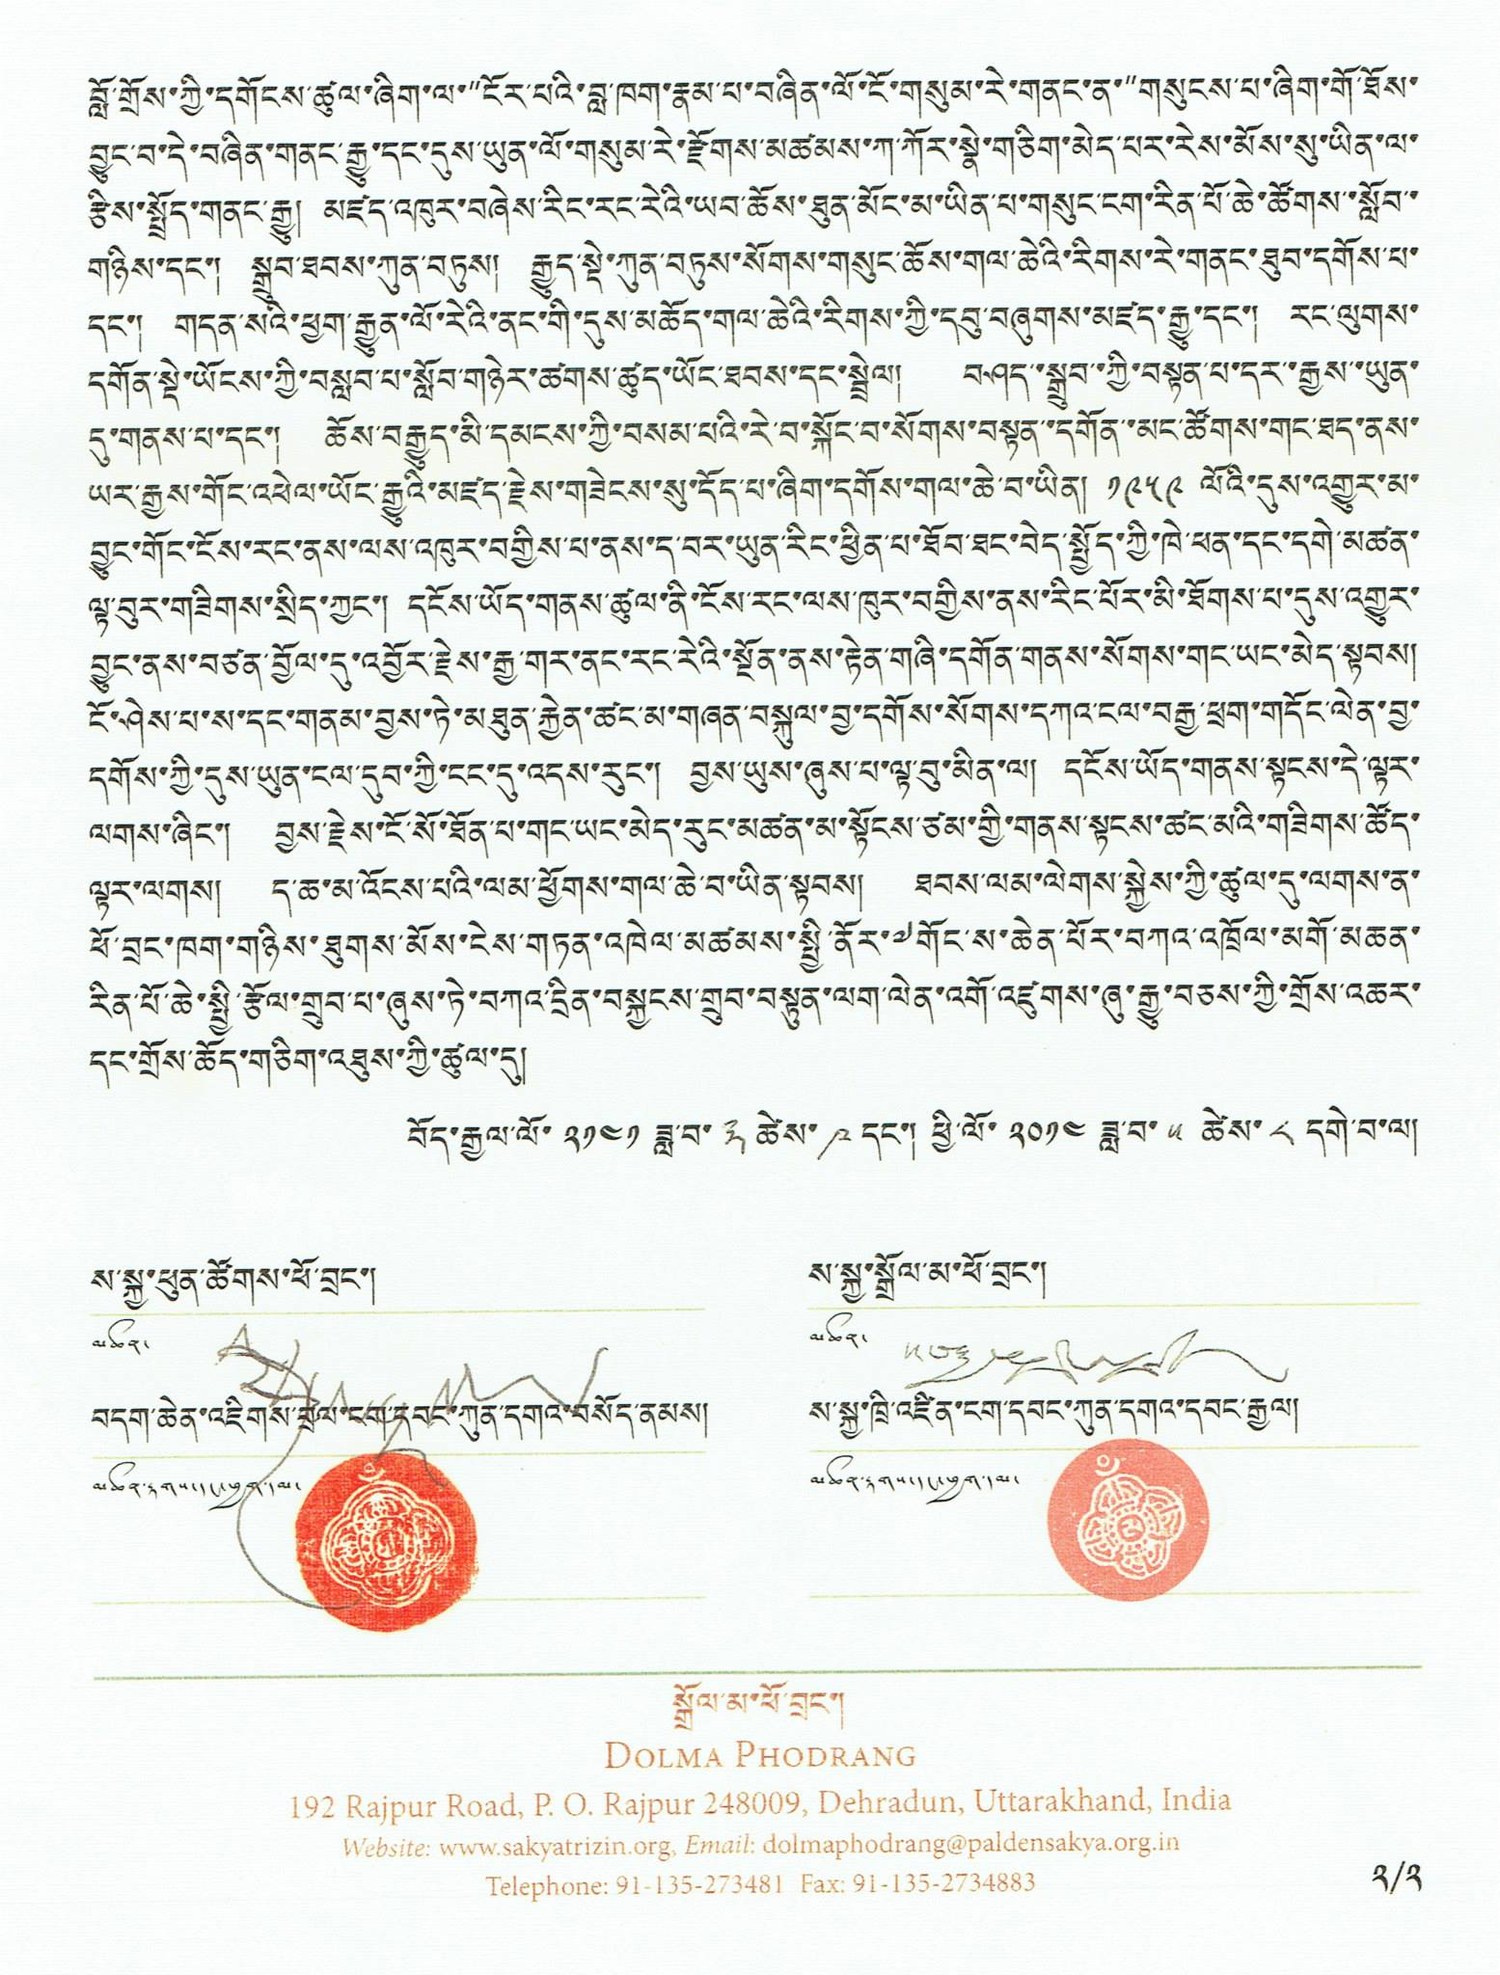 བློ་གྲོས་ཀྱི་དགོངས་ཚུལ་ཞིག་ལ་"ངོར་པའི་བླ་ཁག་རྣམ་པ་བཞིན་ལོ་ངོ་གསུམ་རེ་གནང་ན་"གསུངས་པ་ཞིག་གོ་ཐོས་
བྱུང་བ་དེ་བཞིན་གནང་རྒྱུ་དང་དུས་ཡུན་ལོ་གསུམ་རེ་རྫོགས་མཚམས་ཀ་ཀོར་སྣེ་གཅིག་མེད་པར་རེས་མོས་སུ་ཡིན་ལ་
རྩིས་སྤྲོད་གནང་རྒྱུ། མཛད་འཁུར་བཞེས་རིང་རང་རེའི་ཡབ་ཆོས་ཐུན་མོང་མ་ཡིན་པ་གསུང་ངག་རིན་པོ་ཆེ་ཚོགས་སློབ་
གཉིས་དང་། སྒྲུབ་ཐབས་ཀུན་བཏུས། རྒྱུད་སྡེ་ཀུན་བཏུས་སོགས་གསུང་ཆོས་གལ་ཆེའི་རིགས་རེ་གནང་ཐུབ་དགོས་པ་
དང་། གདན་སའི་ཕྱག་རྒྱུན་ལོ་རེའི་ནང་གི་དུས་མཆོད་གལ་ཆེའི་རིགས་ཀྱི་དབུ་བཞུགས་མཛད་རྒྱུ་དང་། རང་ལུགས་
དགོན་སྡེ་ཡོངས་ཀྱི་བསླབ་པ་སློབ་གཉེར་ཚགས་ཚུད་ཡོང་ཐབས་དང་སྦྲེལ། བཤད་སྒྲུབ་ཀྱི་བསྟན་པ་དར་རྒྱས་ཡུན་
དུ་གནས་པ་དང་། ཆོས་བརྒྱུད་མི་དམངས་ཀྱི་བསམ་པའི་རེ་བ་སྐོང་བ་སོགས་བསྟན་དགོན་མང་ཚོགས་གང་ཐད་ནས་
ཡར་རྒྱས་གོང་འཕེལ་ཡོང་རྒྱུའི་མཛད་རྗེས་གཟེངས་སུ་དོད་པ་ཞིག་དགོས་གལ་ཆེ་བ་ཡིན། ༡༩༥༩ ལོའི་དུས་འགྱུར་མ་
བྱུང་གོང་ངོས་རང་ནས་ལས་འཁུར་བགྱིས་པ་ནས་ད་བར་ཡུན་རིང་ཕྱིན་པ་ཐོབ་ཐང་བེད་སྤྱོད་ཀྱི་ཁེ་ཕན་དང་དགེ་མཚན་
ལྟ་བུར་གཟིགས་སྲིད་ཀྱང་། དངོས་ཡོད་གནས་ཚུལ་ནི་ངོས་རང་ལས་ཁུར་བགྱིས་ནས་རིང་པོར་མི་ཐོགས་པ་དུས་འགྱུར་
བྱུང་ནས་བཙན་བྱོལ་དུ་འབྱོར་རྗེས་རྒྱ་གར་ནང་རང་རེའི་སྔོན་ནས་རྟེན་གཞི་དགོན་གནས་སོགས་གང་ཡང་མེད་སྟབས།
ངོ་ཤེས་པ་ས་དང་གནམ་བྱས་ཏེ་མཐུན་རྐྱེན་ཚང་མ་གཞན་བསྐུལ་བྱ་དགོས་སོགས་དཀའ་ངལ་བརྒྱ་ཕྲག་གདོང་ལེན་བྱ་
དགོས་ཀྱི་དུས་ཡུན་ངལ་དུབ་ཀྱི་ངང་དུ་འདས་རུང་། བྱས་ཡུས་ཞུས་པ་ལྟ་བུ་མིན་ལ། དངོས་ཡོད་གནས་སྟངས་དེ་ལྟར་
ལགས་ཞིང་། བྱས་རྗེས་ངོ་སོ་ཐོན་པ་གང་ཡང་མེད་རུང་མཚན་མ་སྟོངས་ཙམ་གྱི་གནས་སྟངས་ཚང་མའི་གཟིགས་ཚོད་
ལྟར་ལགས། ད་ཆ་མ་འོངས་པའི་ལམ་ཕྱོགས་གལ་ཆེ་བ་ཡིན་སྟབས། ཐབས་ལམ་ལེགས་སྐྱེས་ཀྱི་ཚུལ་དུ་ལགས་ན་
ཕོ་བྲང་ཁག་གཉིས་ཐུགས་མོས་ངེས་གཏན་འཁེལ་མཚམས་སྤྱི་ནོར་༧གོང་ས་ཆེན་པོར་བཀའ་འཁྲོལ་མགོ་མཆན་
རིན་པོ་ཆེ་སྤྱི་རྩོལ་གྲུབ་པ་ཞུས་ཏེ་བཀའ་དྲིན་བསྐྱངས་གྲུབ་བསྟུན་ལག་ལེན་འགོ་འཛུགས་ཞུ་རྒྱུ་བཅས་ཀྱི་གྲོས་འཆར་
དང་གྲོས་ཆོད་གཅིག་འཐུས་ཀྱི་ཚུལ་དུ།
བོད་རྒྱལ་ལོ་ ༢༡༤༡ ཟླ་བ་ ༣ ཚེས་ ༩ དང་། ཕྱི་ལོ་ ༢༠༡༤ ཟླ་བ་ ༥ ཚེས་ ༨ དགེ་བ་ལ།
ས་སྐྱ་ཕུན་ཚོགས་ཕོ་བྲང་།
ས་སྐྱ་སྒྲོལ་མ་ཕོ་བྲང་།
བདག་ཆེན་འཇིགས་བྲལ་ངག་དབང་ཀུན་དགའ་བསོད་ནམས།
ས་སྐྱ་ཁྲི་འཛིན་ངག་དབང་ཀུན་དགའ་དབང་རྒྱལ།
སྒྲོལ་མ་ཕོ་བྲང་།
DOLMA PHODRANG
192 Rajpur Road, P. O. Rajpur 248009, Dehradun, Uttarakhand, India
Website: www.sakyatrizin.org, Email: dolmaphodrang@paldensakya.org.in
Telephone: 91-135-273481 Fax: 91-135-2734883
༢/༢